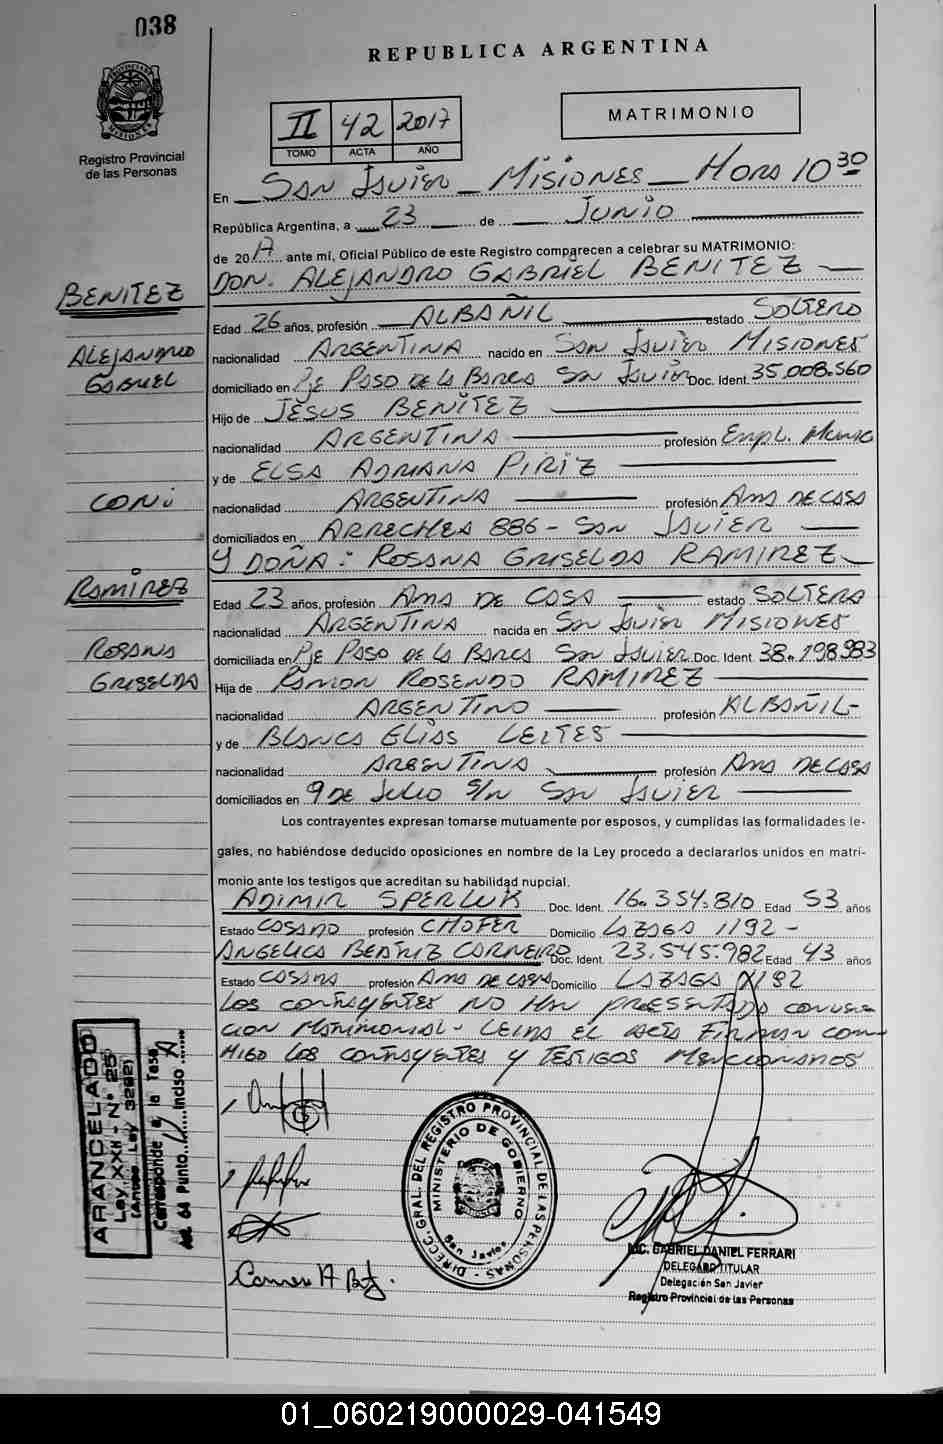 038
REPUBLICA ARGENTINA
II 42 2017
TOMO ACTA AÑO
MATRIMONIO
Registro Provincial
de las Personas
En SAN JAVIER - MISIONES - HORA 10 30
República Argentina, a 23 de JUNIO
de 2017 ante mí, Oficial Público de este Registro comparecen a celebrar su MATRIMONIO:
DON. ALEJANDRO GABRIEL BENITEZ
BENITEZ
ALEJANDRO
GABRIEL
CON:
RAMIREZ
ROSANA
GRISELDA
Edad 26 años, profesión ALBAÑIL estado SOLTERO
nacionalidad ARGENTINA nacido en SAN JAVIER MISIONES
domiciliado en PJE PASO DE LA BARCA SAN JAVIER Doc. Ident. 35.008.560
Hijo de JESUS BENITEZ
nacionalidad ARGENTINA profesión EMPL. MUNIC
y de ELSA ADRIANA PIRIZ
nacionalidad ARGENTINA profesión AMA DE CASA
domiciliados en ARRECHEA 886 - SAN JAVIER
Y DOÑA: ROSANA GRISELDA RAMIREZ
Edad 23 años, profesión AMA DE CASA estado SOLTERA
nacionalidad ARGENTINA nacida en SAN JAVIER MISIONES
domiciliada en PJE PASO DE LA BARCA SAN JAVIER Doc. Ident. 38.198.983
Hija de RAMON ROSENDO RAMIREZ
nacionalidad ARGENTINO profesión ALBAÑIL-
y de BLANCA ELIAS LEITES
nacionalidad ARGENTINA profesión AMA DE CASA
domiciliados en 9 DE JULIO S/N SAN JAVIER
Los contrayentes expresan tomarse mutuamente por esposos, y cumplidas las formalidades le-
gales, no habiéndose deducido oposiciones en nombre de la Ley procedo a declararlos unidos en matri-
monio ante los testigos que acreditan su habilidad nupcial.
ADIMIR SPERLUK Doc. Ident. 16.354.810 Edad 53 años
Estado CASADO profesión CHOFER Domicilio LAZAGA 1192 -
ANGELICA BEATRIZ CARNEIRO Doc. Ident. 23.545.982 Edad 43 años
Estado CASADA profesión AMA DE CASA Domicilio LAZAGA 1192
LOS CONTRAYENTES NO HAN PRESENTADO CONVEN
CION MATRIMONIAL - LEIDA EL ACTA FIRMAN CON
MIGO LOS CONTRAYENTES Y TESTIGOS MENCIONADOS
ARANCELADO
Ley XXII - N° 25
(Antes Ley 3262)
Corresponde a la Tasa
Art. 64 Punto Inciso A
DIRECC. GRAL. DEL REGISTRO PROVINCIAL DE LAS PERSONAS
MINISTERIO DE GOBIERNO
San Javier
LIC. GABRIEL DANIEL FERRARI
DELEGADO TITULAR
Delegación San Javier
Registro Provincial de las Personas
01_060219000029-041549